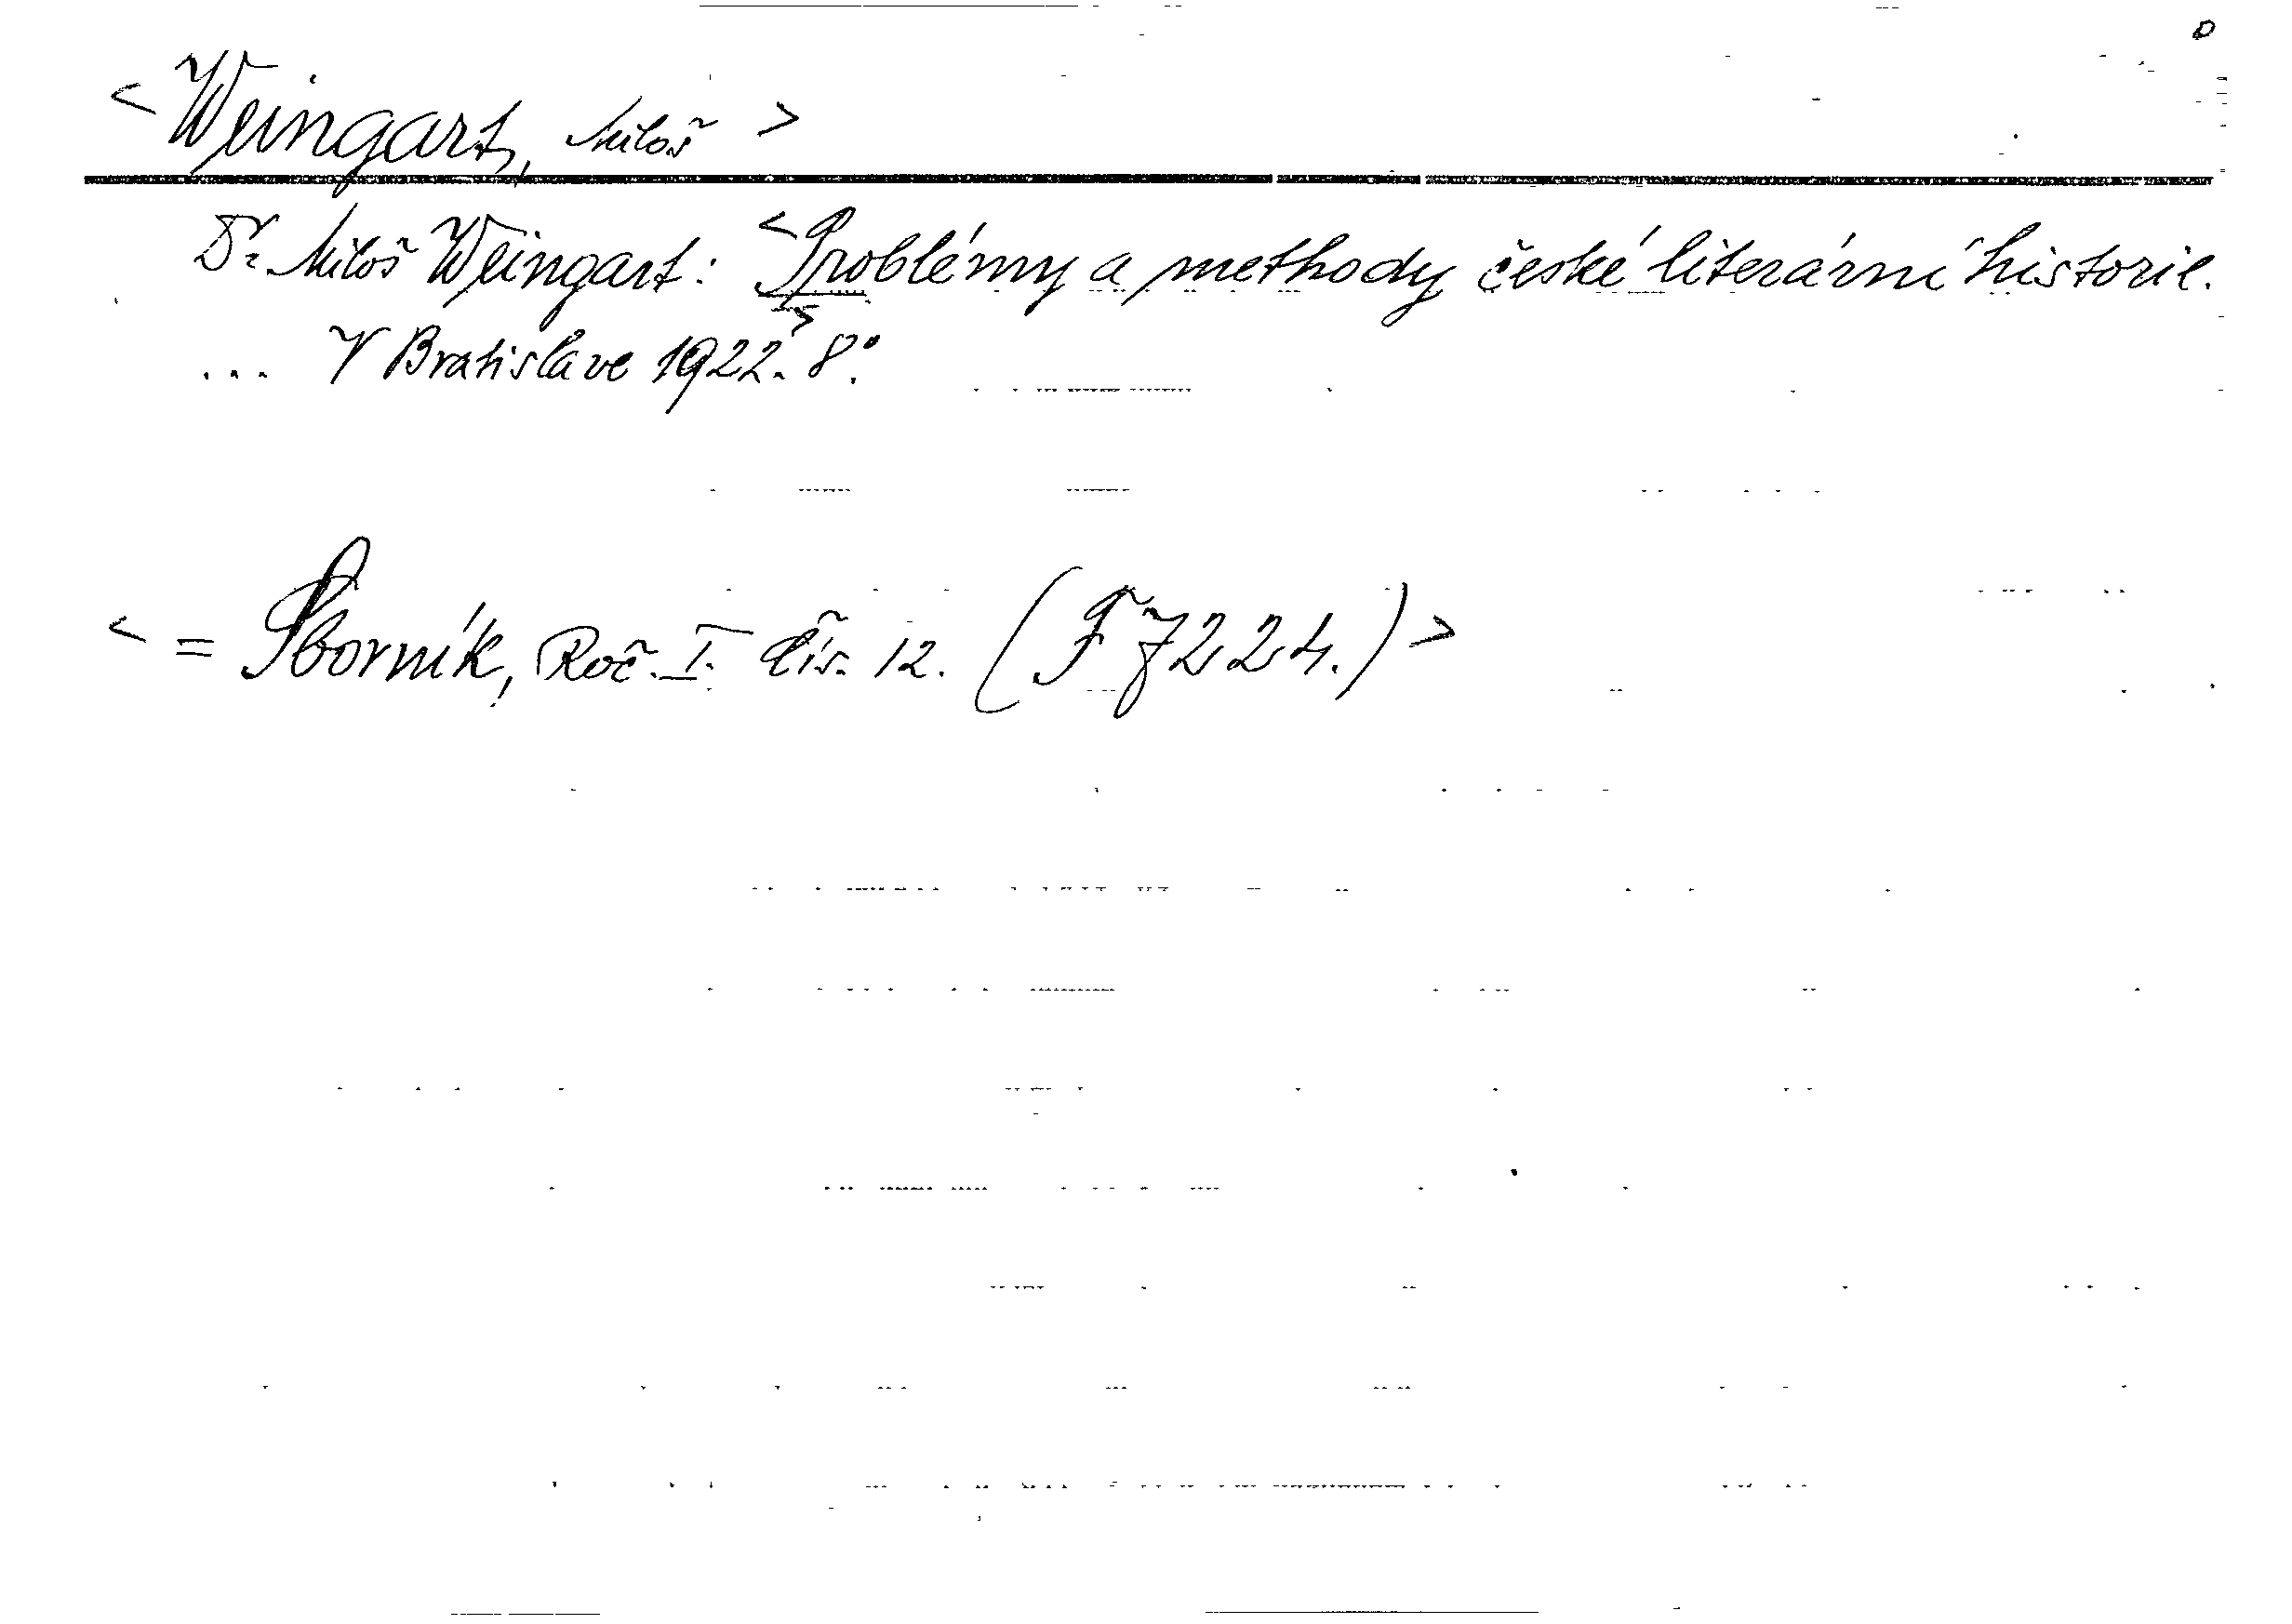 < Weingart, Miloš >
Dr. Miloš Weingart: <Problémy a methody české literární historie.
... V Bratislave 1922.> 8°.
< = Sborník, Roč. I. čís. 12. (F 7224.) >